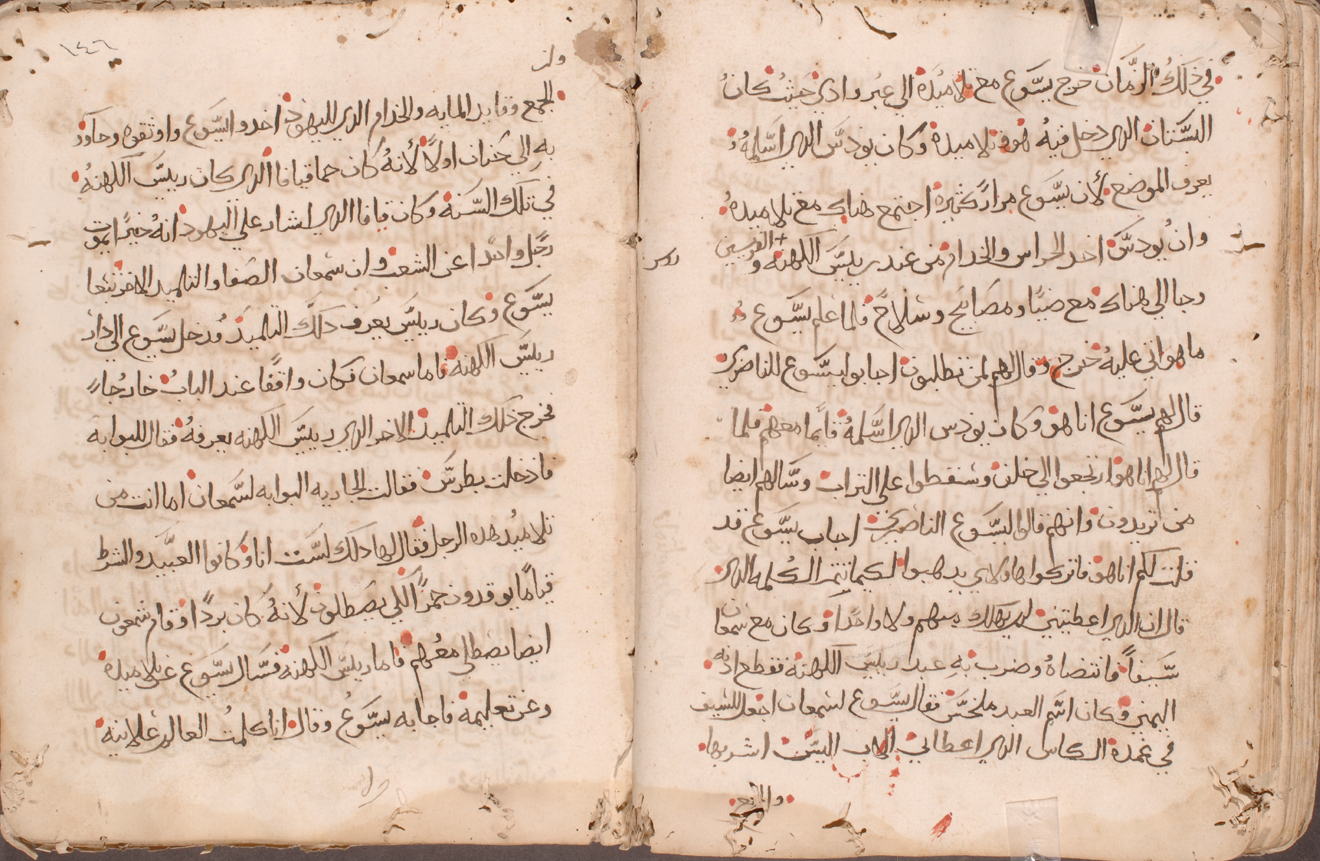 في ذلك الزمان خرج يسوع مع تلاميده الى عبر وادى حيث كان
البستان الدى دخل فيه هو وتلاميده وكان يودس الدى اسلمه
يعرف الموضع لأن يسوع مرارًا كثيره اجتمع هناك مع تلاميده
وان يودس اخد الحراس والخدام من عند رييس الكهنه و الفريسين
وجا الى هناك مع ضيا ومصابيح وسلاح فلما علم يسوع
ما هو اتى عليه خرج وقال لهم لمن تطلبون اجابوا يسوع الناصرى
قال لهم يسوع انا هو وكان يودس الدى اسلمه قايما معهم فلما
قال لهم انا هو ارجعوا الى خلف وسقطوا على التراب وسالهم ايضا
من تريدون وانهم قالوا يسوع الناصرى اجاب يسوع قد
قلت لكم انا هو فاتركوا هاولاى يدهبوا لكيما تتم الكلمه الدى
قال ان الدى اعطيتنى لم يهلك منهم ولا واحدًا وكان مع سمعان
سيفًا فانتضاه وضرب به عبد رييس الكهنة فقطع ادنه
اليمنى وكان اسم العبد ملخس فقال يسوع لسمعان اجعل السيف
في غمده الكاس الدى اعطانى الاب اليس اشربها
والجمع
١٤٦
الجمع وقايد المايه والخدام الدى لليهود اخدوا يسوع واوثقوه وجاوو
به الى حنان اولًا لأنه كان حما قيافا الدى كان رييس الكهنه
في تلك السنة وكان قيافا الدى اشار على اليهود انه خيرًا يموت
رجل واحدًا عن الشعب وان سمعان الصفا والتلميد الاخر تبعا
يسوع وكان رييس يعرف دلك التلميد ودخل يسوع الى دار
رييس الكهنه فاما سمعان فكان واقفًا عند الباب خارجًا
فخرج دلك التلميد الاخر الدى رييس الكهنه يعرفه فقال للبوابه
فادخلت بطرس فقالت الجاريه البوابه لسمعان اما انت من
تلاميد هده الرجل فقال لها دلك لست انا وكانوا العبيد والشرط
قيامًا يوقدون جمرًا لكى يصطلون لأنه كان بردًا وقام سمعون
ايضا يصطلى معهم فاما رييس الكهنه فسال يسوع عن تلاميده
وعن تعليمه فاجابه يسوع وقال انا كلمت العالم علانيه